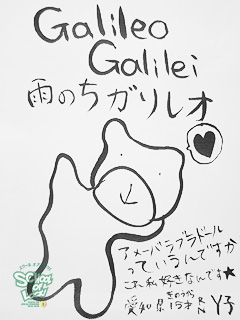 Galileo
Galilei
雨のちガリレオ
アメーバラブラドール
っているんですか
これ私好きなんです★
愛知県 15才 RN Y子